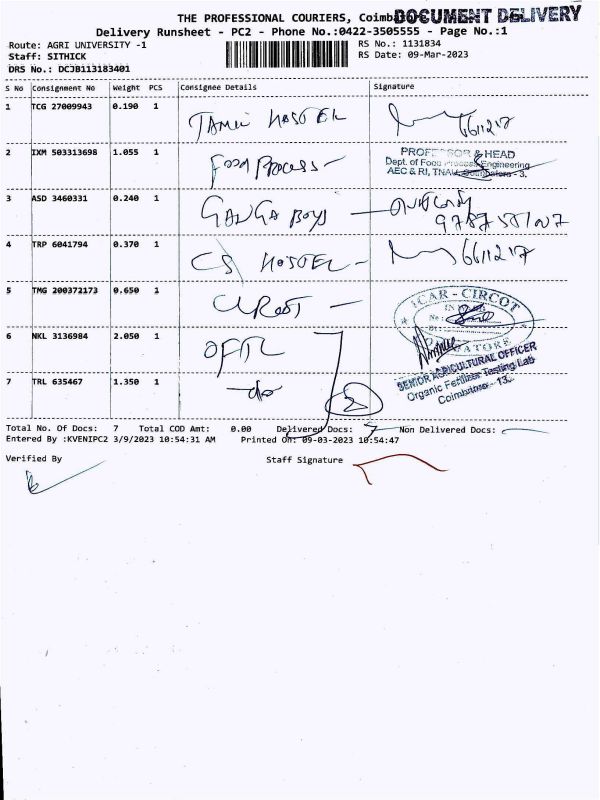 THE PROFESSIONAL COURIERS, Coimb
DOCUMENT DELIVERY
Delivery Runsheet - PC2 - Phone No.:0422-3505555 - Page No.:1
Route: AGRI UNIVERSITY -1
RS No.: 1131834
Staff: SITHICK
RS Date: 09-Mar-2023
DRS No.: DCJB113183401
S No Consignment No Weight PCS Consignee Details Signature
1 TCG 27009943 0.190 1 TAMIL HOSTEL 6611217
2 IXM 503313698 1.055 1 Food Process
PROFESSOR & HEAD
Dept. of Food Process Engineering
AEC & RI, TNAU, Coimbatore - 3.
3 ASD 3460331 0.240 1 GANGA BOYS
4 TRP 6041794 0.370 1 CS HOSTEL 6611217
5 TMG 200372173 0.650 1 CIRCOT
ICAR - CIRCOT
6 NKL 3136984 2.050 1 OFTL
SENIOR AGRICULTURAL OFFICER
Organic Fertilizer Testing Lab
Coimbatore - 13.
7 TRL 635467 1.350 1 -do- 2
Total No. Of Docs: 7 Total COD Amt: 0.00 Delivered Docs: 7 Non Delivered Docs:
Entered By :KVENIPC2 3/9/2023 10:54:31 AM Printed On: 09-03-2023 10:54:47
Verified By Staff Signature